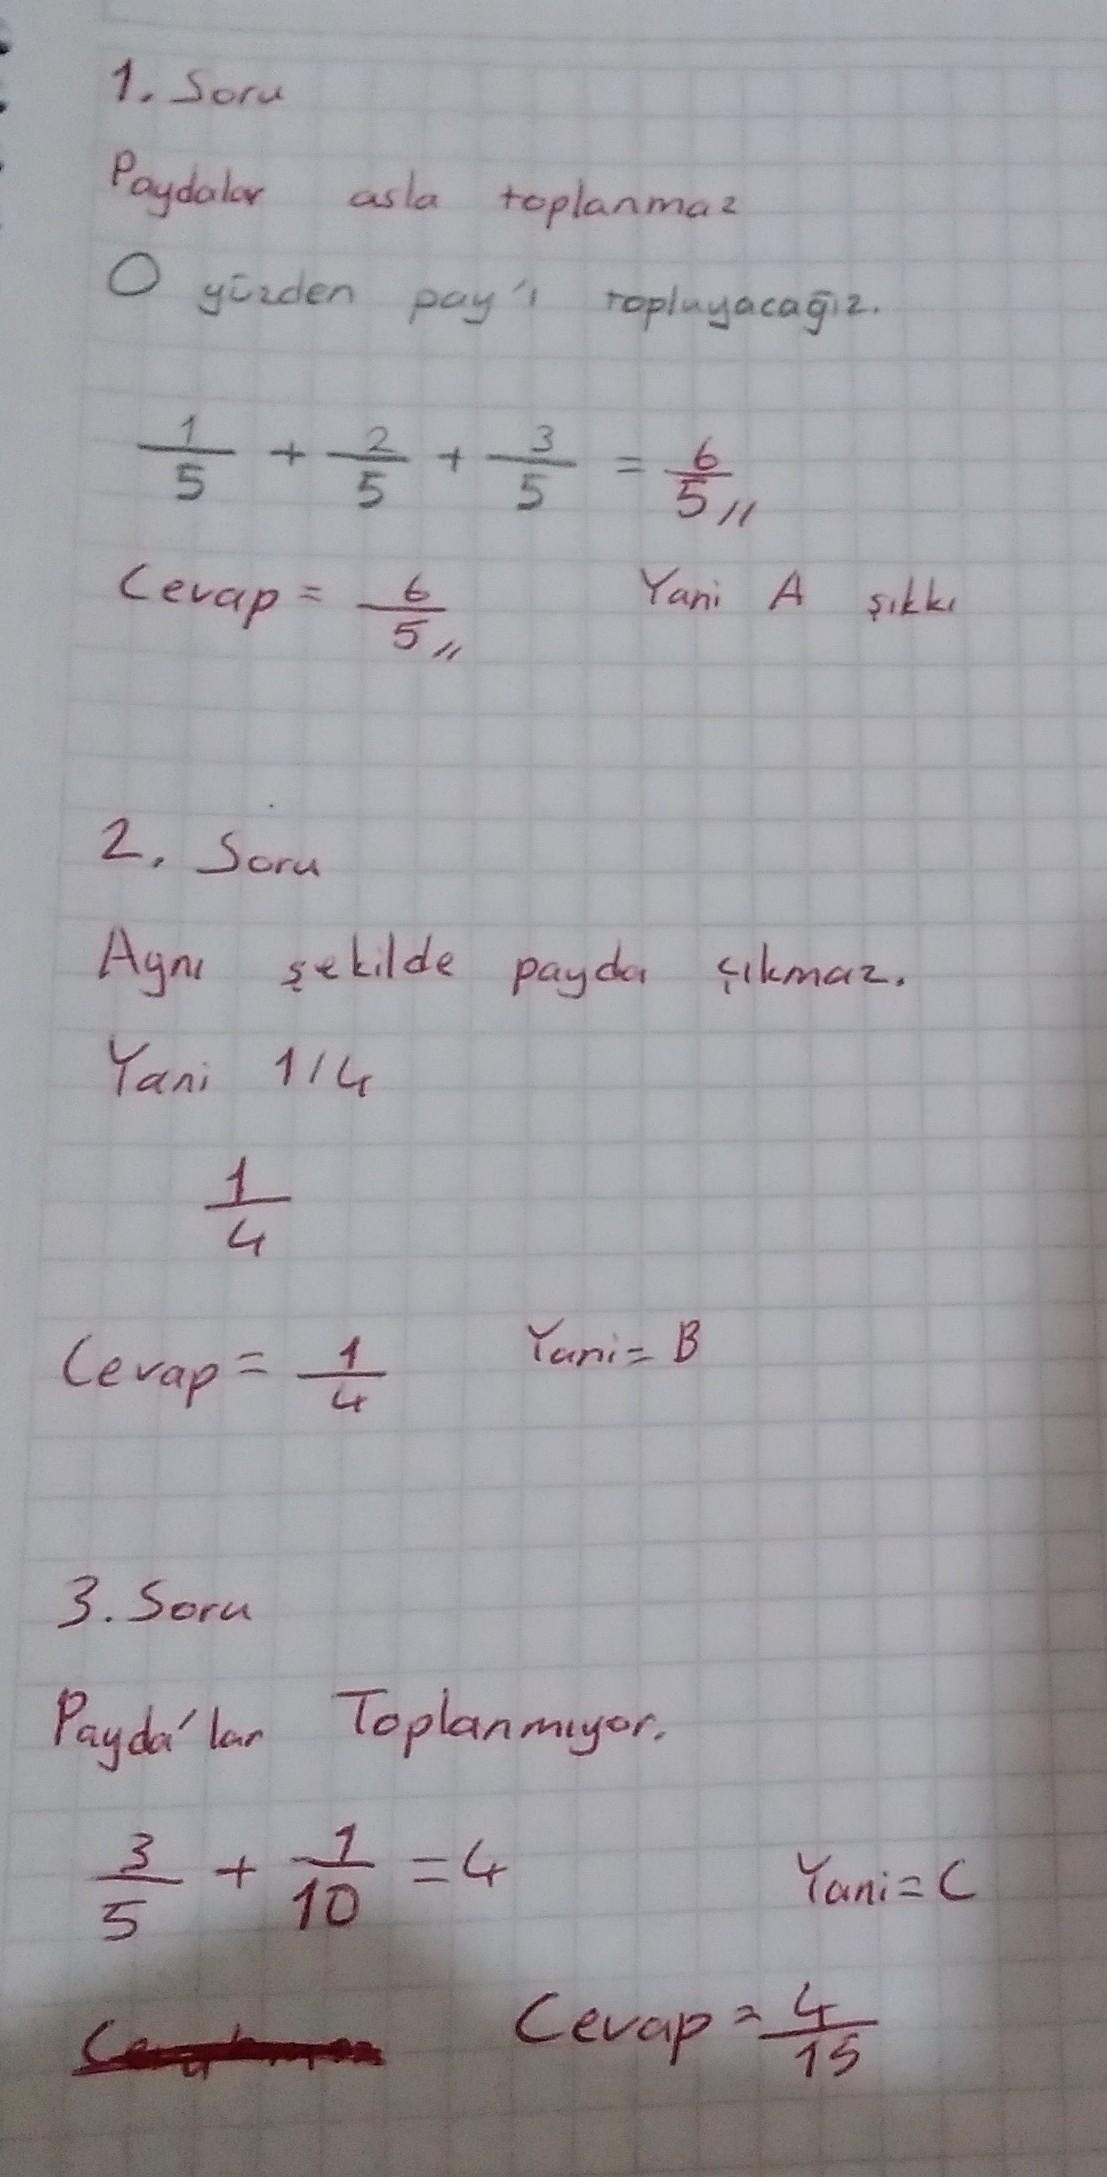 1. Soru
Paydalar asla toplanmaz
O yüzden pay'ı topluyacağız.
1/5 + 2/5 + 3/5 = 6/5 //
Cevap = 6/5 // Yani A şıkkı
2. Soru
Aynı şekilde payda çıkmaz.
Yani 1/4
1/4
Cevap = 1/4 Yani = B
3. Soru
Payda'lar Toplanmıyor.
3/5 + 1/10 = 4 Yani = C
Cevap = 4/15